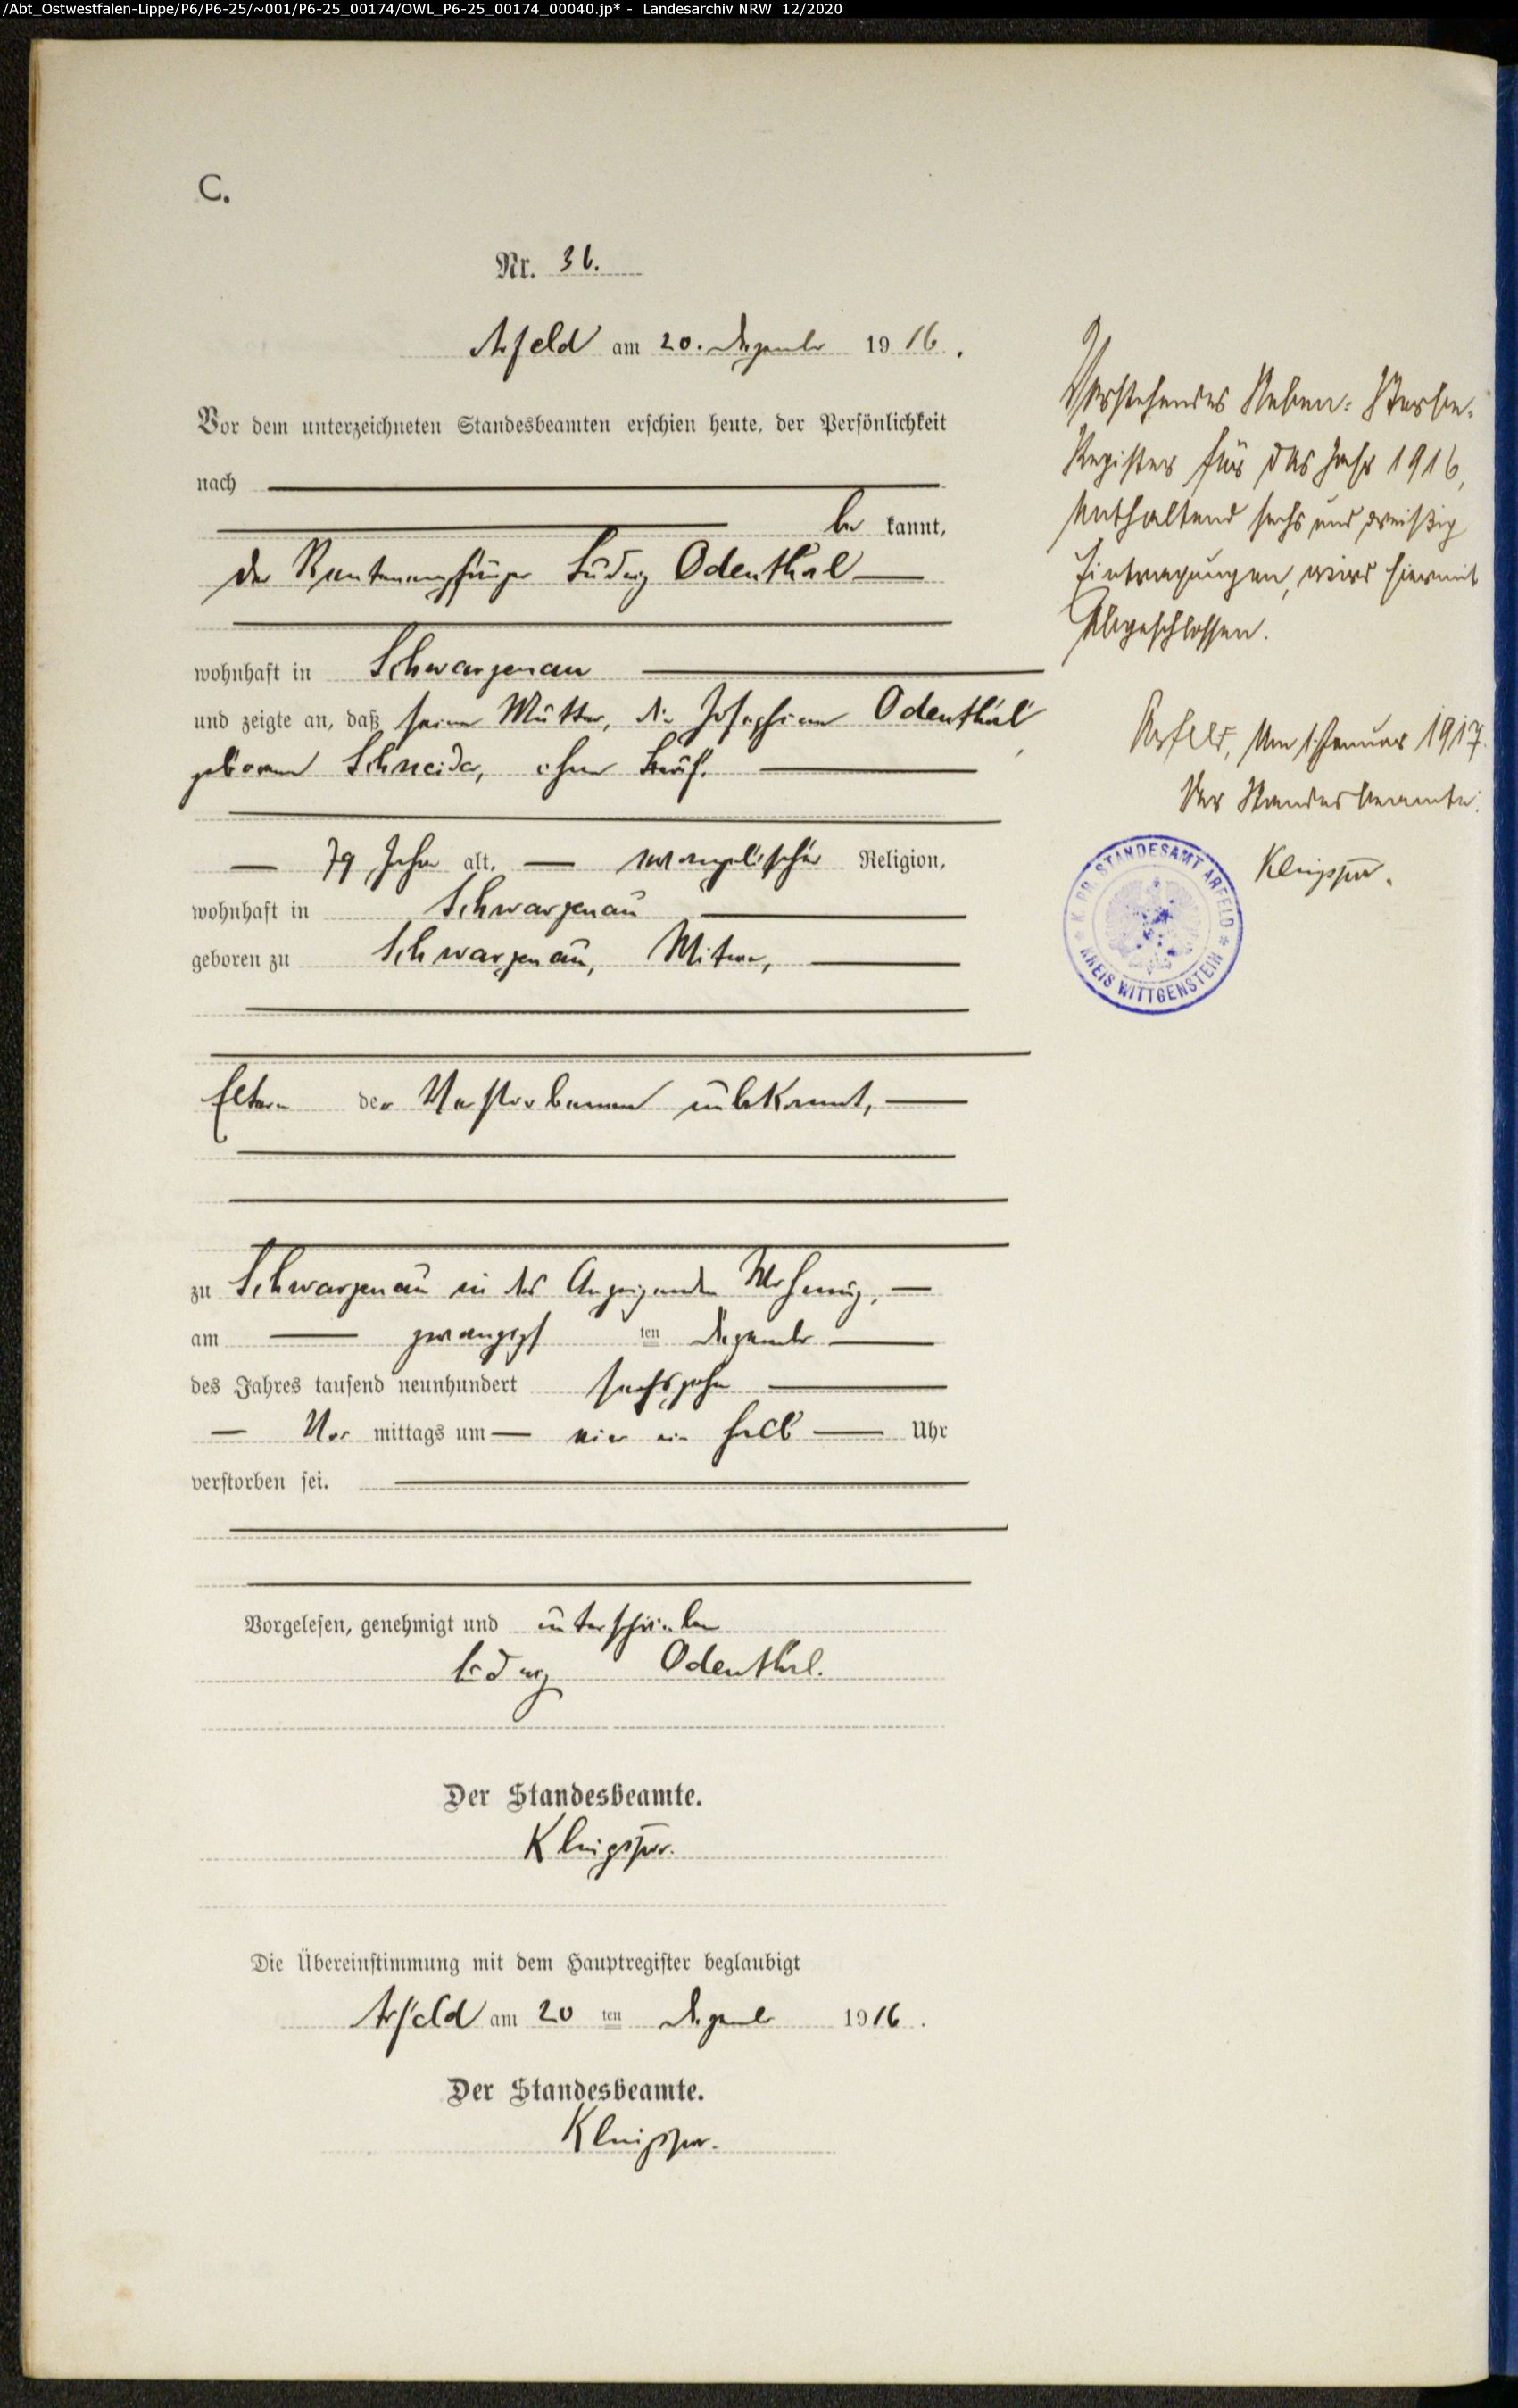 /Abt_Ostwestfalen-Lippe/P6/P6-25/~001/P6-25_00174/OWL_P6-25_00174_00040.jp* - Landesarchiv NRW 12/2020
C.
Nr. 36.
Arfeld am 20. Dezember 1916.
Vor dem unterzeichneten Standesbeamten erschien heute, der Persönlichkeit
nach
be kannt,
der Rentenempfänger Ludwig Odenthal
wohnhaft in Schwarzenau
und zeigte an, daß seine Mutter, die Josephine Odenthal
geborene Schneider, ohne Beruf.
79 Jahre alt, evangelischer Religion,
wohnhaft in Schwarzenau
geboren zu Schwarzenau, Witwe,
Eltern der Verstorbenen unbekannt,
zu Schwarzenau in des Anzeigenden Wohnung,
am zwanzigsten Dezember
des Jahres tausend neunhundert sechszehn
Vor mittags um vier ein halb Uhr
verstorben sei.
Vorgelesen, genehmigt und unterschrieben
Ludwig Odenthal.
Der Standesbeamte.
Klingspor.
Die Übereinstimmung mit dem Hauptregister beglaubigt
Arfeld am 20 ten Dezember 1916.
Der Standesbeamte.
Klingspor.
Vorstehendes Neben-Sterbe-
Register für das Jahr 1916,
enthaltend sechs und dreißig
Eintragungen, wird hiermit
abgeschlossen.
Arfeld, am 1. Januar 1917.
Der Standesbeamte.
Klingspor.
K. PR. STANDESAMT ARFELD
* KREIS WITTGENSTEIN *